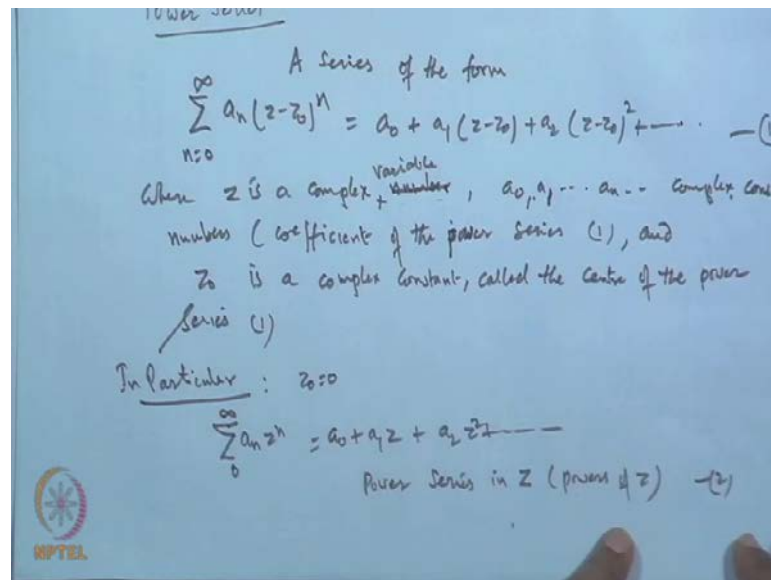 Power Series
A Series of the form
∞
∑ aₙ (z-z₀)ⁿ = a₀ + a₁ (z-z₀) + a₂ (z-z₀)² + ----- — (1
n=0
variable
Where z is a complex , number , a₀, a₁ --- aₙ -- complex const
numbers ( coefficient of the power series (1), and
z₀ is a complex constant, called the centre of the power
Series (1)
In Particular : z₀=0
∞
∑ aₙ zⁿ = a₀ + a₁ z + a₂ z² + -----
0
Power Series in z (powers of z) —(2)
NPTEL